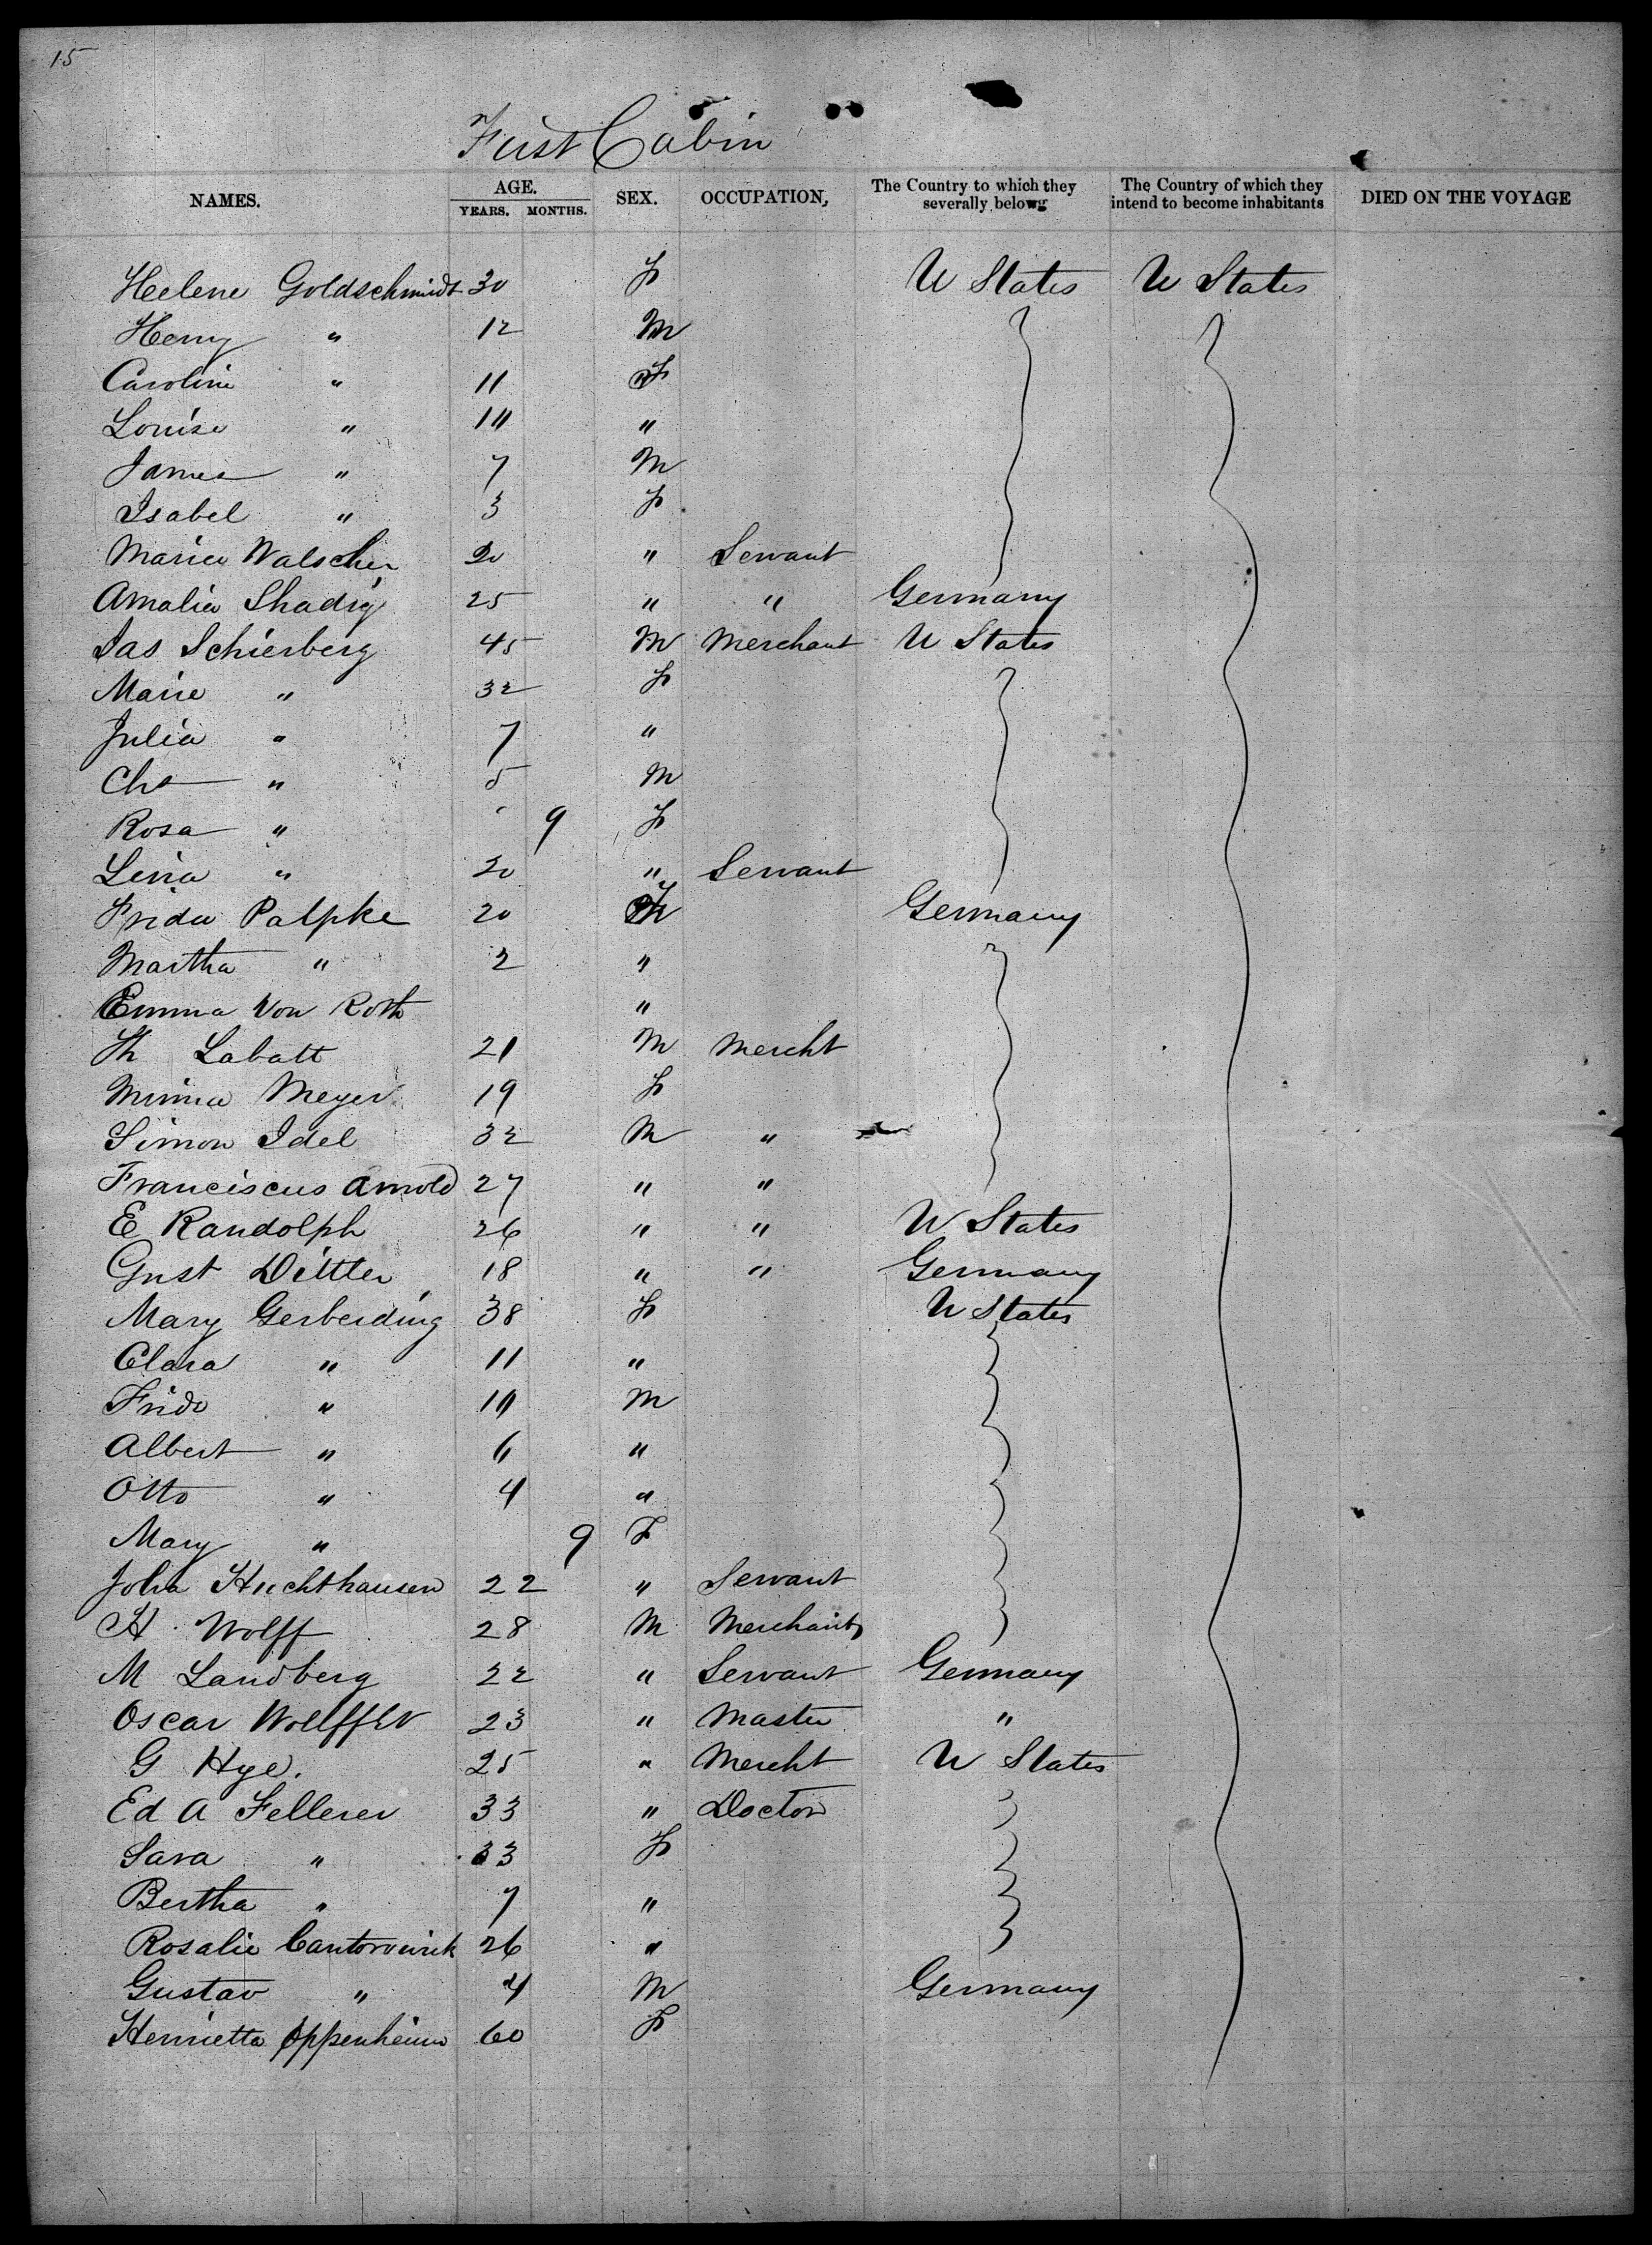 15
First Cabin
NAMES. AGE. YEARS. MONTHS. SEX. OCCUPATION, The Country to which they severally belowg The Country of which they intend to become inhabitants DIED ON THE VOYAGE
Helene Goldschmidt 30 F U States U States
Henry " 12 M
Caroline " 11 F
Louise " "
James " 7 M
Isabel " 3 F
Maria Walscher 20 " Servant
Amalia Shadig 25 " " Germany
Jas Schierberg 45 M Merchant U States
Marie " 32 F
Julia " 7 "
Chs " 5 M
Rosa " 9 F
Lena " 20 " Servant
Frida Palpke 20 F Germany
Martha " 2 "
Emma Von Roth "
Th Labatt 21 M Mercht
Minna Meyer 19 F
Simon Idel 32 M "
Franciscus Arnold 27 " "
E Randolph 26 " " U States
Gust Dittler 18 " " Germany
Mary Gerberding 38 F U States
Clara " 11 "
Frido " M
Albert " 6 "
Otto " 4 "
Mary " 9 F
Joha Huchthausen 22 " Servant
H. Wolff 28 M Merchant
M Landberg 22 " Servant Germany
Oscar 23 " Master "
G Hye. 25 " Mercht U States
Ed A Fellerer 33 " Doctor
Sara " 33 F
Bertha " 7 "
Rosalie 26 "
Gustav " 4 M Germany
Henrietta Oppenheim 60 F